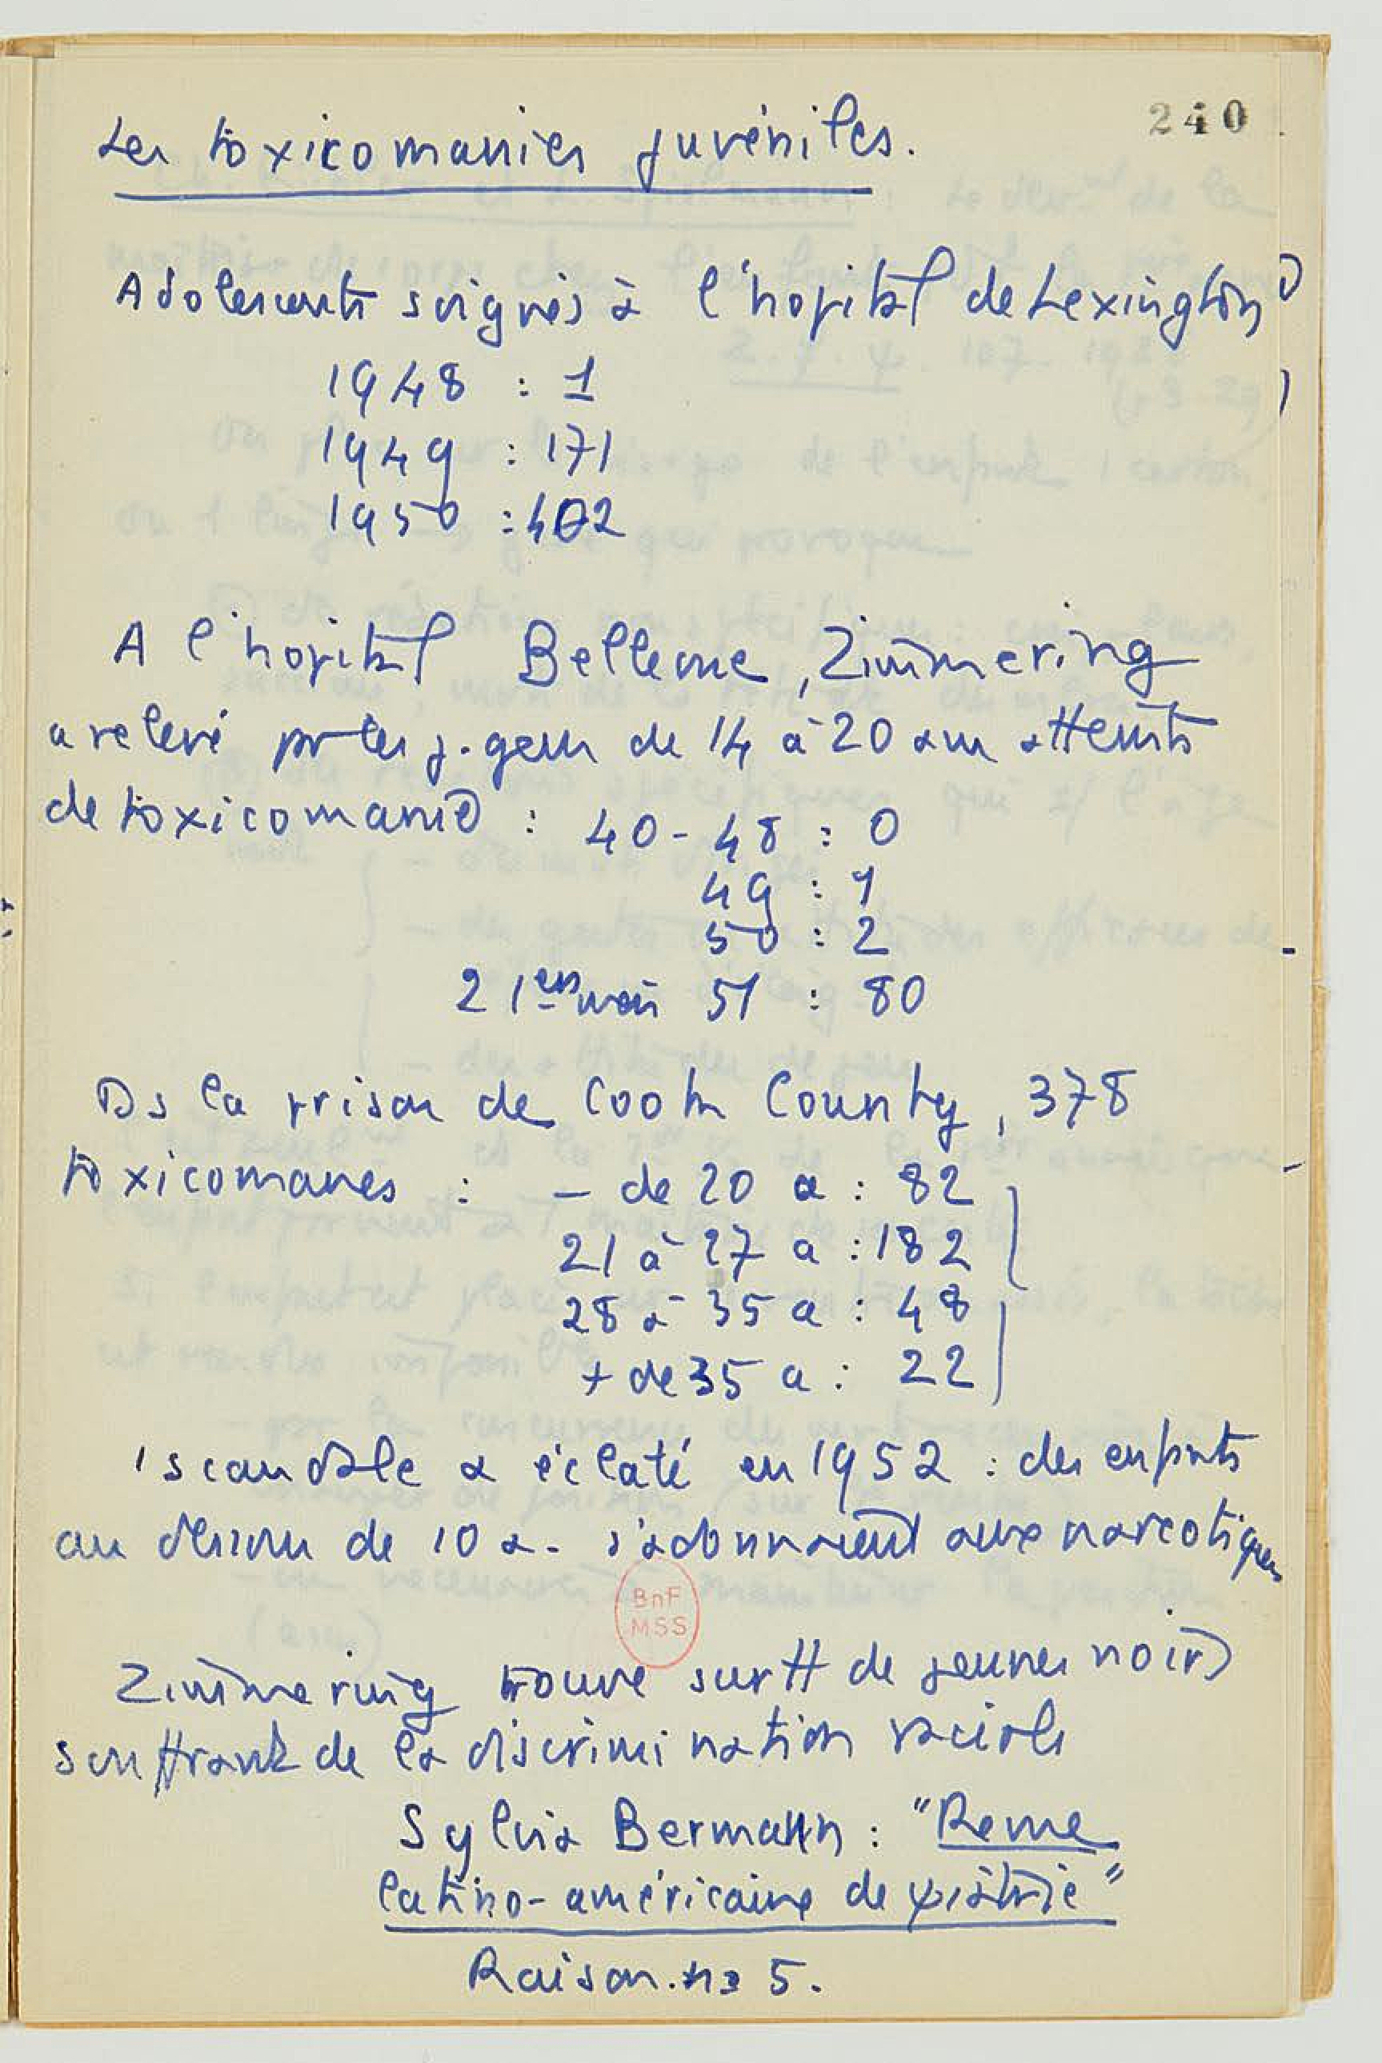 240
Les toxicomanies juvéniles.
Adolescents soignés à l'hopital de Lexington
1948 : 1
1949 : 171
1950 : 402
A l'hopital Bellevue, Zimmering
a relevé pr les j. gens de 14 à 20 ans atteints
de toxicomanie : 40-48 : 0
49 : 1
50 : 2
2 1ers mois 51 : 80
Ds la prison de Cook County, 378
toxicomanes : - de 20 a : 82
21 à 27 a : 182
28 à 35 a : 48
+ de 35 a : 22
1 scandale a éclaté en 1952 : des enfants
au dessous de 10 a. s'adonnaient aux narcotiques
BnF
MSS
Zimmering trouve surtt de jeunes noirs
souffrant de la discrimination raciale
Sylvia Bermann : "Revue
latino-américaine de ψiatrie"
Raison. no 5.